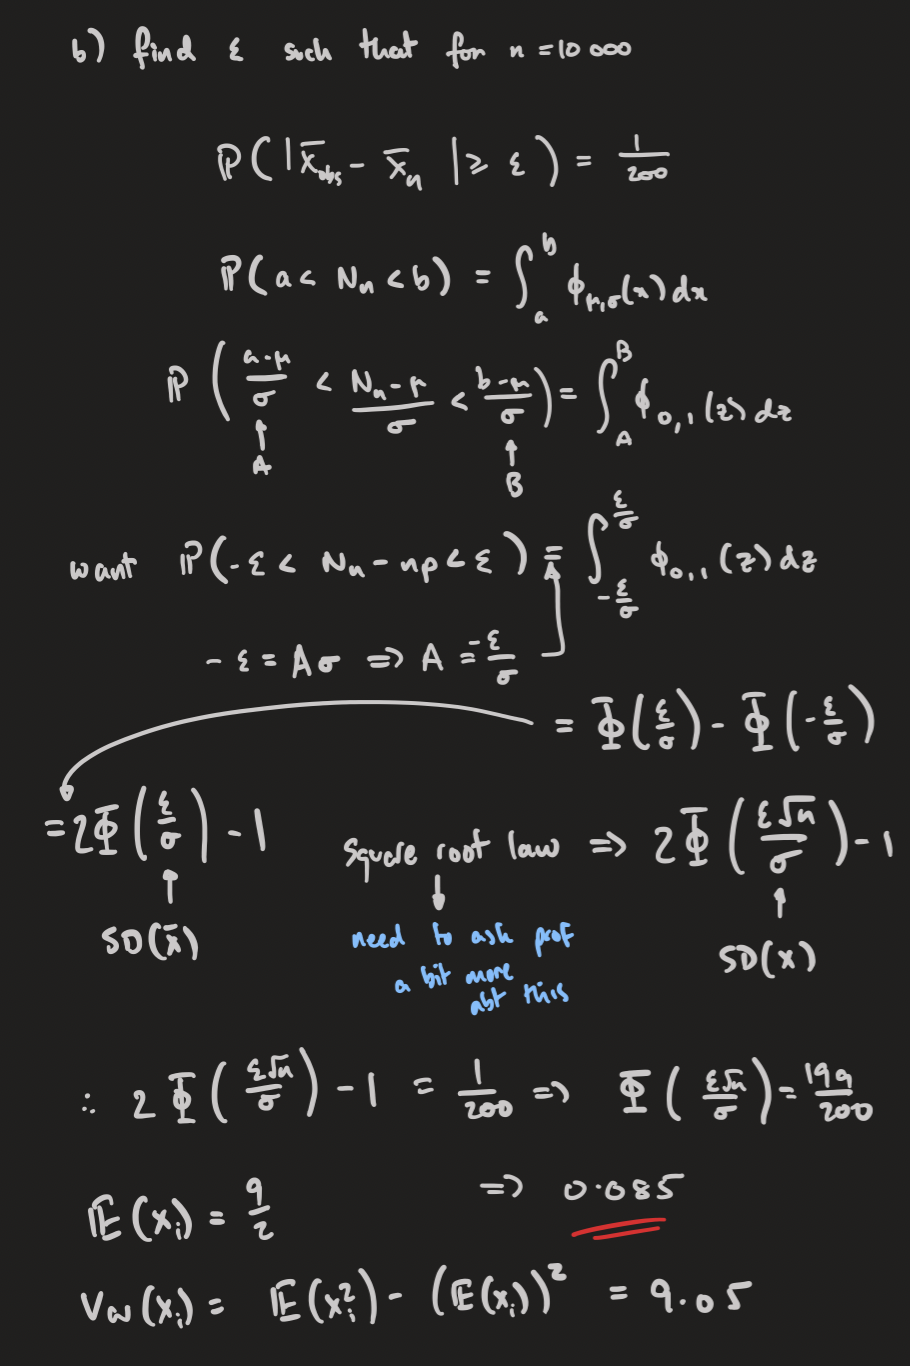 b) find ε such that for n = 10 000
ℙ( |x̄_obs - x̄_n | ≥ ε ) = 1/200
ℙ( a < N_n < b ) = ∫_a^b ϕ_{μ,σ}(x) dx
ℙ ( (a-μ)/σ < (N_n - μ)/σ < (b-μ)/σ ) = ∫_A^B ϕ_{0,1}(z) dz
↑ A
↑ B
want ℙ(-ε < N_n - np < ε ) = ∫_{-ε/σ}^{ε/σ} ϕ_{0,1}(z) dz
-ε = Aσ ⇒ A = -ε/σ
= Φ(ε/σ) - Φ(-ε/σ)
= 2Φ(ε/σ) - 1
↑
SD(x̄)
Square root law ⇒ 2Φ(ε√n/σ) - 1
↑
SD(x)
↓
need to ask prof
a bit more
abt this
∴ 2Φ(ε√n/σ) - 1 = 1/200 ⇒ Φ(ε√n/σ) = 199/200
⇒ 0.085
𝔼(x_i) = 9/2
Var(x_i) = 𝔼(x_i²) - (𝔼(x_i))² = 9.05